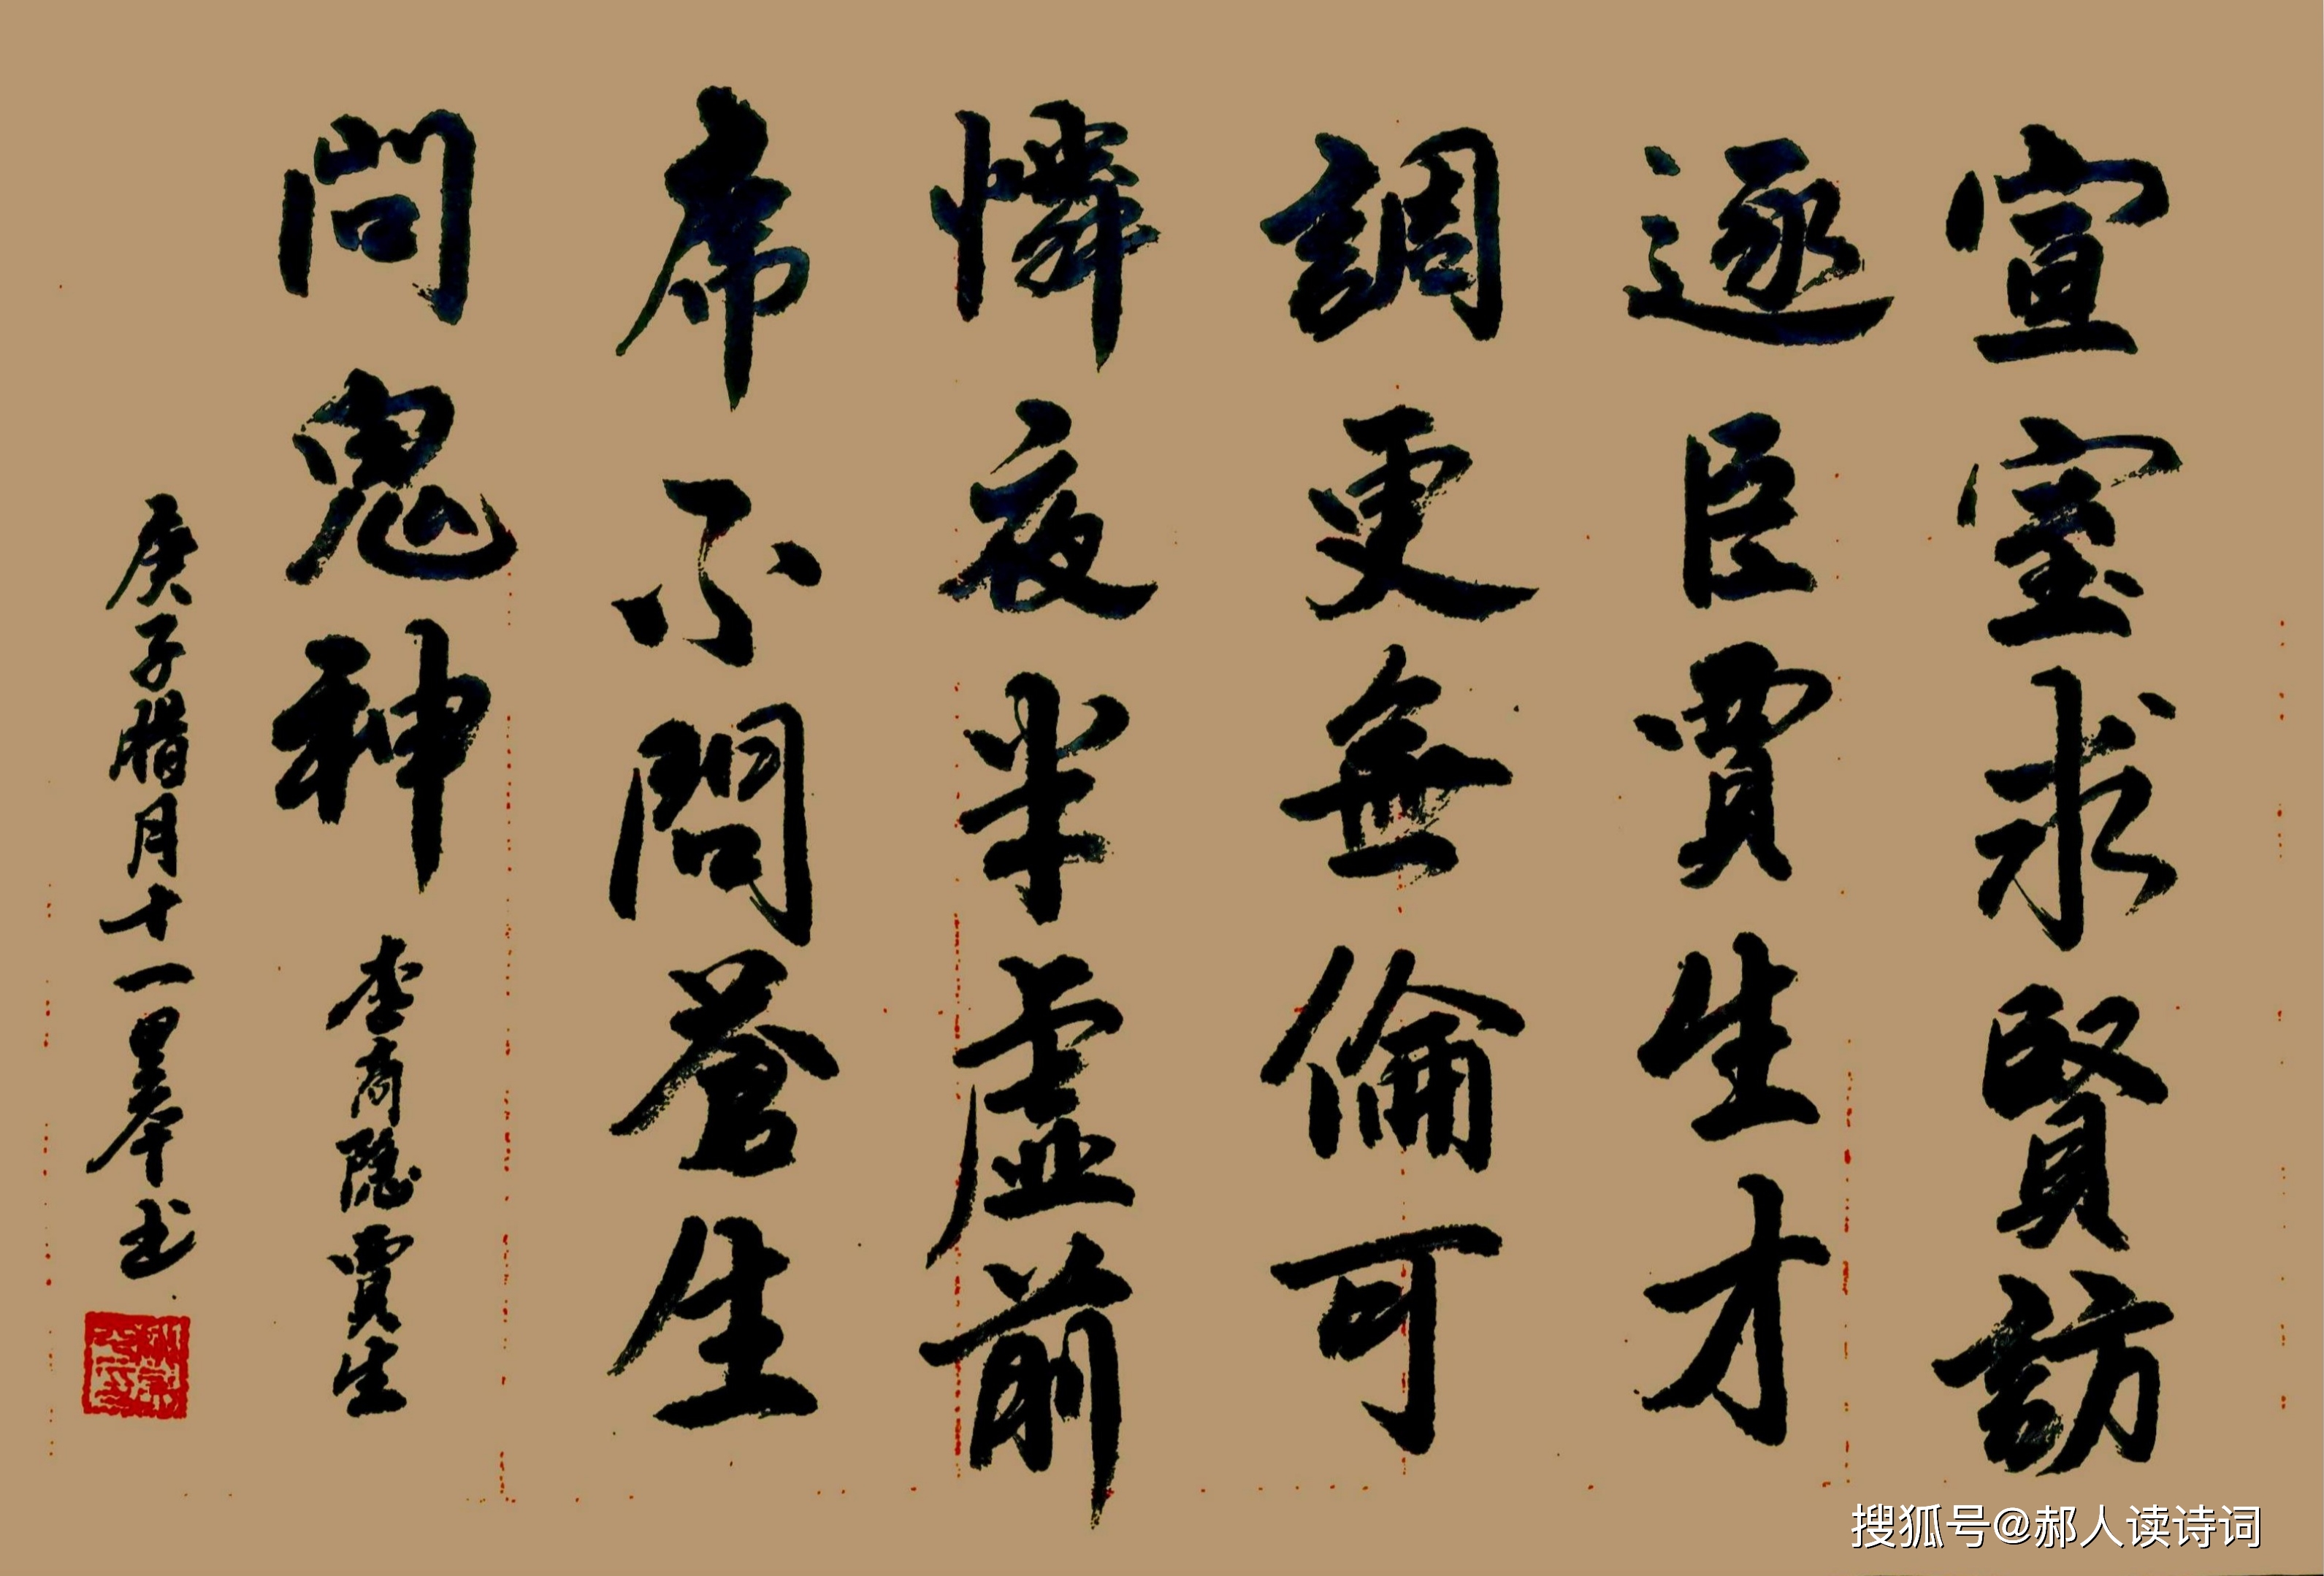 宣室求賢訪
逐臣賈生才
調更無倫可
憐夜半虛前
席不問蒼生
問鬼神 李商隐賈生
庚子腊月十一
搜狐号@郝人读诗词